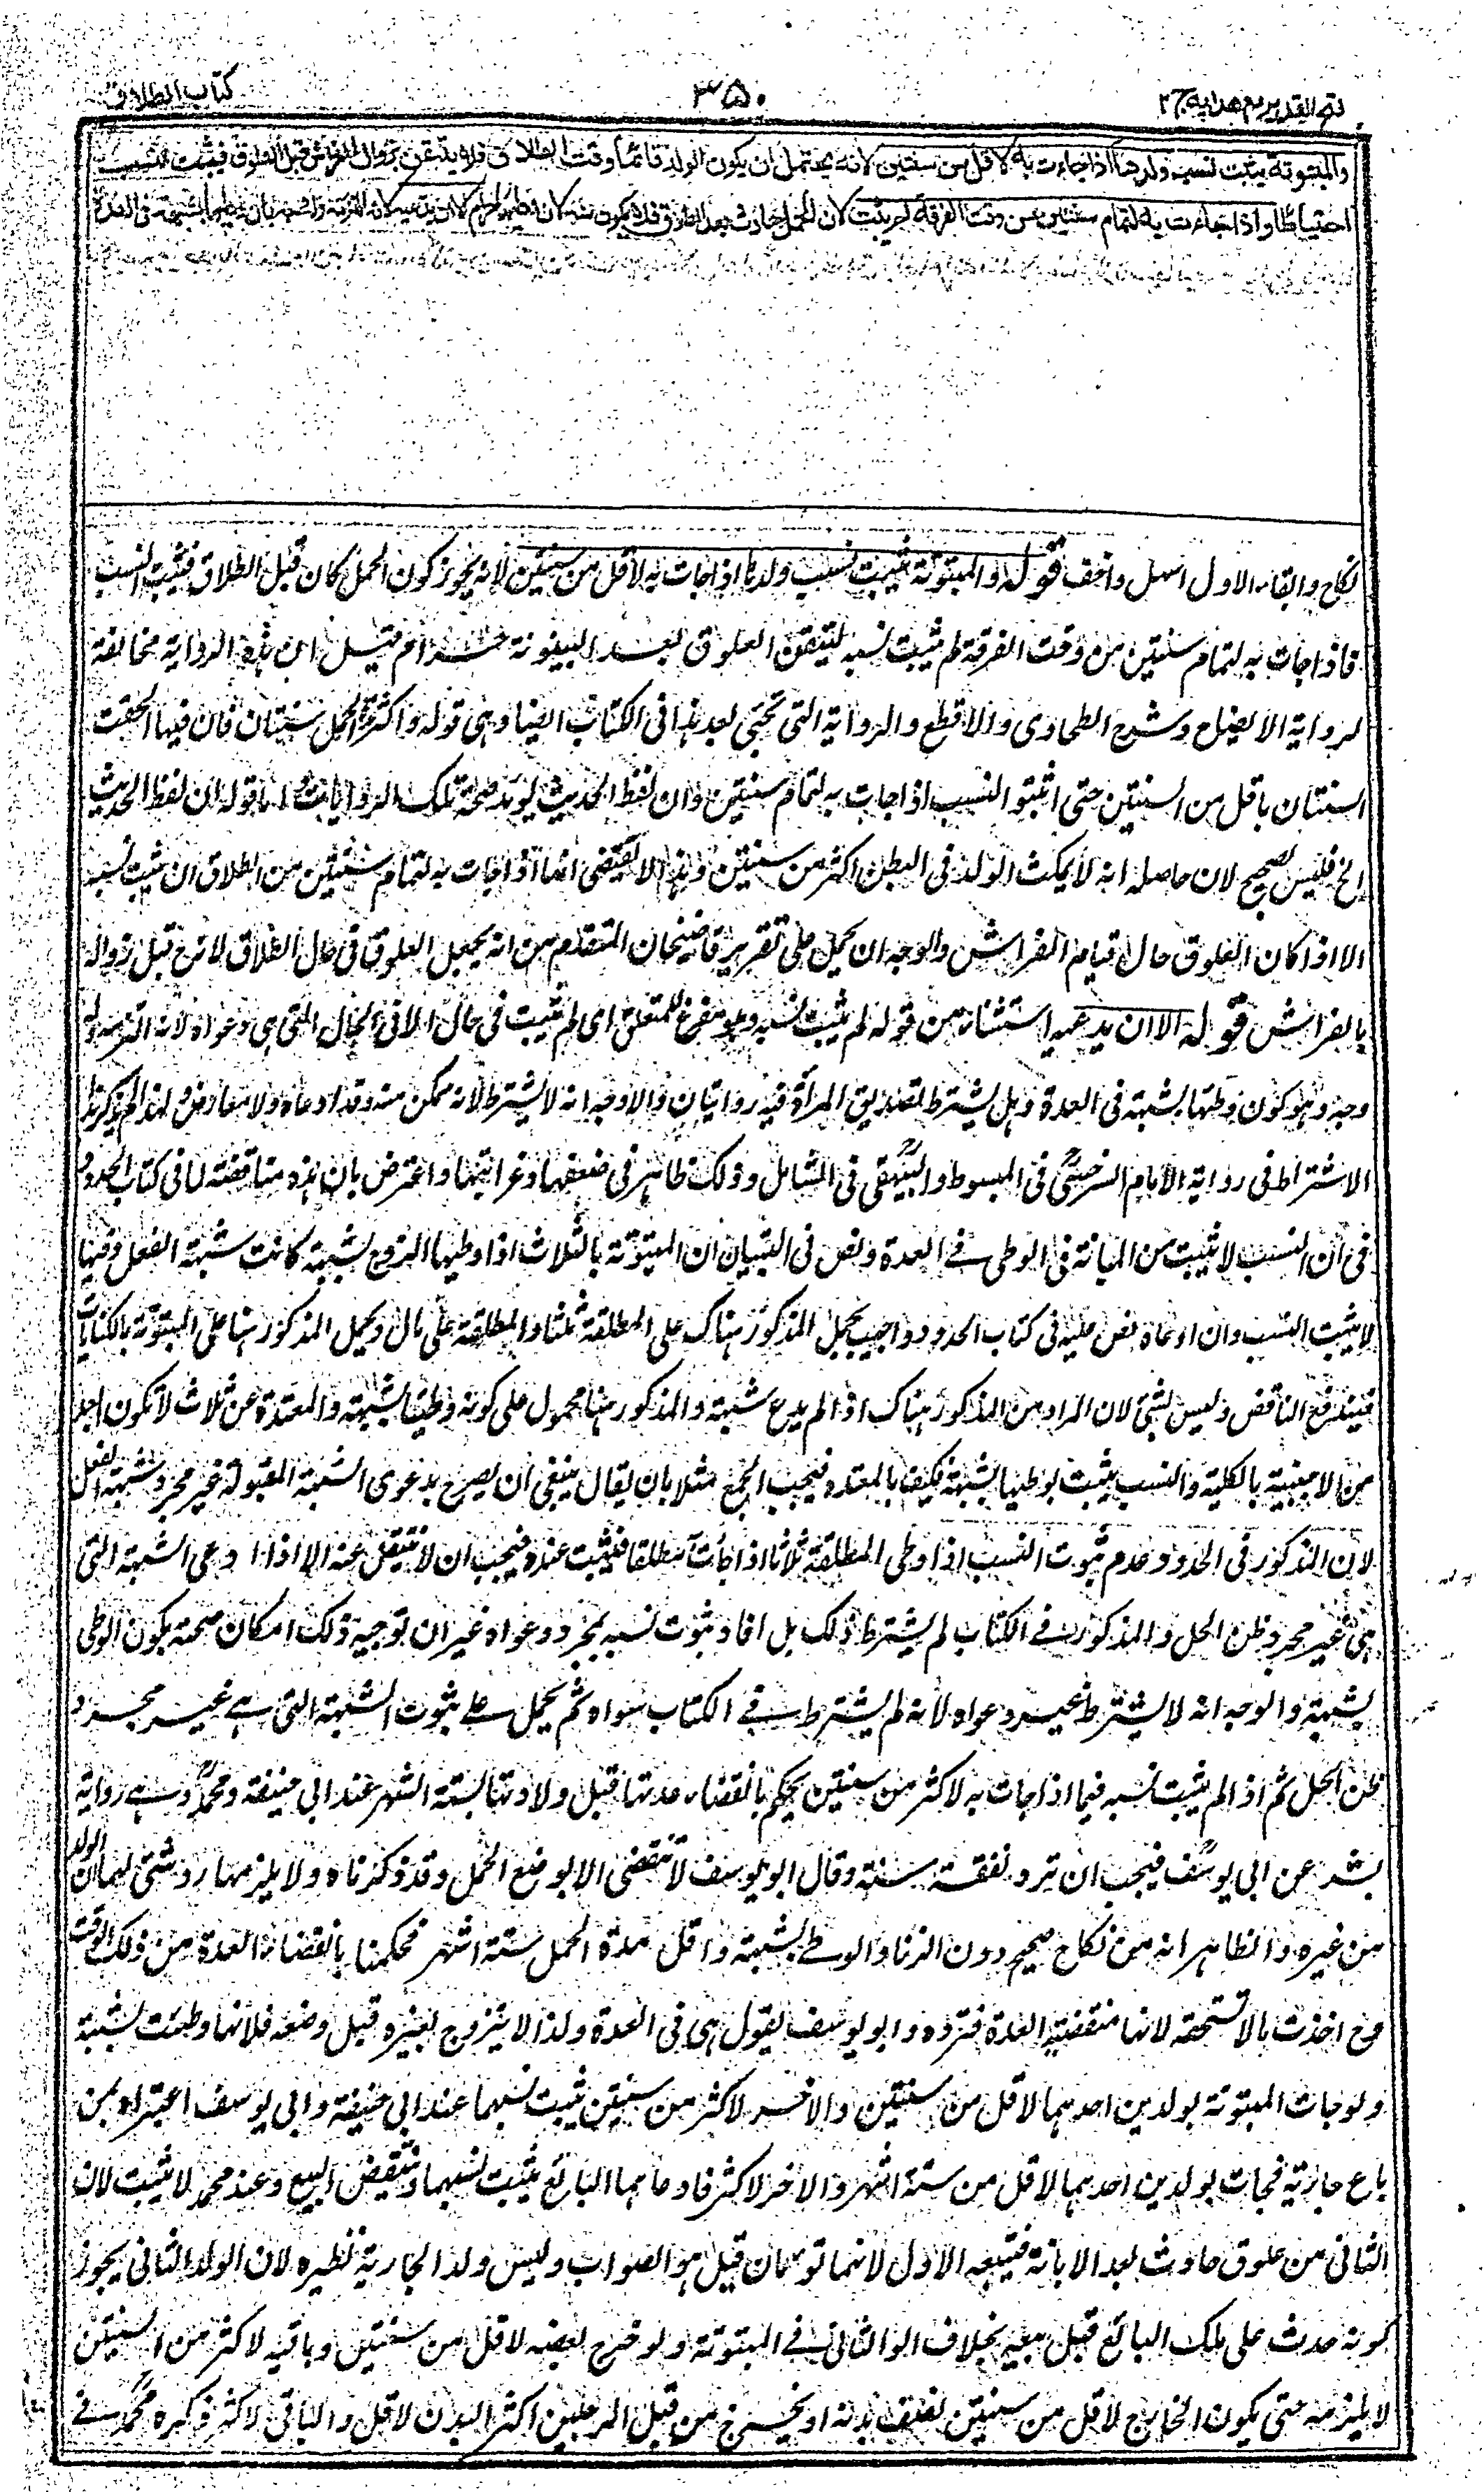 فتح القدير مع هدايه ج ٢
٣٥٠
كتاب الطلاق
والمبتوتة يثبت نسب ولدها اذا جاءت به لاقل من سنتين لانه يحتمل ان يكون الولد قائما وقت الطلاق فلا يتيقن بزوال الفراش قبل العلوق فيثبت النسب
احتياطا واذا جاءت به لتمام سنتين من وقت الفرقة لم يثبت لان الحمل حادث بعد الطلاق فلا يكون منه لان وطيها حرام الا ان يدعيه لانه التزمه وله وجه بان وطيها بشبهة فى العدة
نكاح والبقاء الاول اسهل واخف قوله والمبتوتة يثبت نسب ولدها اذا جات به لاقل من سنتين لانه يجوز كون الحمل كان قبل الطلاق فيثبت النسب
فاذا جات به لتمام سنتين من وقت الفرقة لم يثبت نسبه لتيقن العلوق بعد البينونة قيل ان هذه الرواية مخالفة
لرواية الايضاح وشرح الطحاوى والاقطع والرواية التى تجئى بعد هذا فى الكتاب ايضا وهى قوله واكثر مدة الحمل سنتان فان فيها الحقت
السنتان باقل من السنتين حتى اثبتوا النسب اذا جات به لتمام سنتين وان لفظ الحديث يؤيد صحة تلك الروايات اما قوله ان لفظ الحديث
الخ فليس بصحيح لان حاصله انه لا يمكث الولد فى البطن اكثر من سنتين وهذا لا يقتضى انها اذا جات به لتمام سنتين من الطلاق ان يثبت نسبه
الا اذا كان العلوق حال قيام الفراش والوجه ان يحمل على تقرير قاضيخان المتقدم من انه يجعل العلوق فى حال الطلاق لانه ح قبل زوال
بالفراش قوله الا ان يدعيه استثناء من قوله لم يثبت نسبه وهو مفرغ للمتعلق اى لم يثبت فى حال الا فى الحال التى هى دعواه لانه التزمه وله
وجه وهو كون وطئها بشبهة فى العدة وهل يشترط تصديق المرأة فيه روايتان والاوجه انه لا يشترط لانه ممكن منه وقد ادعاه ولا معارض ولهذا لم يذكر هذا
الاشتراط فى رواية الامام السرخسى فى المبسوط والبيهقى فى الشامل وذلك ظاهر فى ضعفها وغرابتها واعترض بان هذه مناقضة لما فى كتاب الحدود
فى ان النسب لا يثبت من المبانة فى الوطى فى العدة ونص فى التبيان ان المبتوتة بالثلاث اذا وطيها الزوج بشبهة كانت شبهة الفعل وفيها
لا يثبت النسب وان ادعاه نص عليه فى كتاب الحدود واجيب بحمل المذكور هناك على المطلقة ثلثا والمطلقة على مال وحمل المذكور هنا على المبتوتة بالكنايات
فيندفع التناقض وليس بشئ لان المراد من المذكور هناك اذا لم يدع شبهة والمذكور هنا محمول على كونه وطيا بشبهة والمعتدة عن ثلاث لا تكون ابعد
من الاجنبية بالكلية والنسب يثبت بوطيها بشبهة فكيف بالمعتده فيجب الجمع مثلا بان يقال ينبغى ان يصرح بدعوى الشبهة المقبولة غير مجرد شبهة الفعل
لان المذكور فى الحدود عدم ثبوت النسب اذا وطى المطلقة ثلاثا اذا جات مطلقا فيثبت عنده فيجب ان لا ينتقل عنه الا اذا ادعى الشبهة التى
هى غير مجرد ظن الحل والمذكور فى الكتاب لم يشترط ذلك بل افاد ثبوت نسبه بمجرد دعواه غير ان توجيه ذلك امكان صحته بكون الوطى
بشبهة والوجه انه لا يشترط غير دعواه لانه لم يشترط فى الكتاب سواه ثم يحمل على ثبوت الشبهة التى هى غير مجرد
ظن الحل ثم اذا لم يثبت نسبه فيما اذا جات به لاكثر من سنتين يحكم بانقضاء عدتها قبل ولادتها بستة اشهر عند ابى حنيفة ومحمد وهى رواية
بشر عن ابى يوسف فيجب ان ترد نفقة ستة وقال ابو يوسف لا تنقضى الا بوضع الحمل وقد ذكرناه ولا يلزمها رد شئ لهما ان الولد
من غيره والظاهر انه من نكاح صحيح دون الزنا والوطى بشبهة واقل مدة الحمل ستة اشهر فحكمنا بانقضاء العدة من ذلك الوقت
وح اخذت بالا تستحقه لانها منقضية العدة فترده وابو يوسف يقول هى فى العدة ولذا لا يتزوج بغيره قبل وضعه فلانها وطئت بشبهة
ولو جات المبتوتة بولدين احدهما لاقل من سنتين والاخر لاكثر من سنتين يثبت نسبهما عند ابى حنيفة وابى يوسف اعتبراه بمن
باع جارية فجات بولدين احدهما لاقل من ستة اشهر والاخر لاكثر فادعاهما البائع يثبت نسبهما وينتقض البيع وعند محمد لا يثبت لان
الثانى من علوق حادث بعد الابانة فيتبعه الاول لانهما توءمان قيل هو الصواب وليس ولد الجارية نظيره لان الولد الثانى يجوز
كونه حدث على ملك البائع قبل بيعه بخلاف الولد الثانى فى المبتوتة ولو خرج بعضه لاقل من سنتين وباقيه لاكثر من السنتين
لا يلزمه حتى يكون الخارج لاقل من سنتين نصف بدنه او يخرج من قبل الرجلين اكثر البدن لاقل والباقى لاكثر ذكره محمد فى